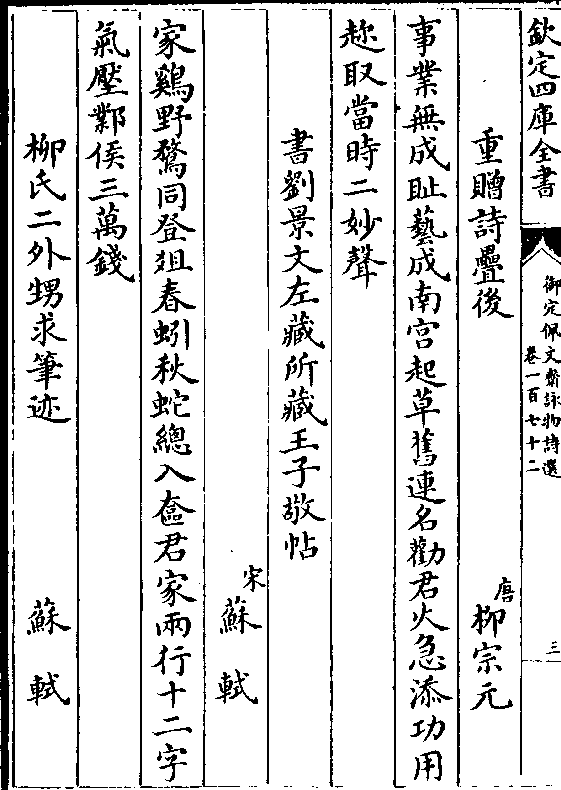 欽定四庫全書
御定佩文齋詠物詩選
卷一百七十二
三
重贈詩疊後
唐柳宗元
事業無成耻藝成南宫起草舊連名勸君火急添功用
趂取當時二妙聲
書劉景文左藏所藏王子敬帖
宋蘇軾
家鷄野鶩同登爼春蚓秋蛇總入奩君家兩行十二字
氣壓鄴侯三萬籖
柳氏二外甥求筆迹
蘇軾